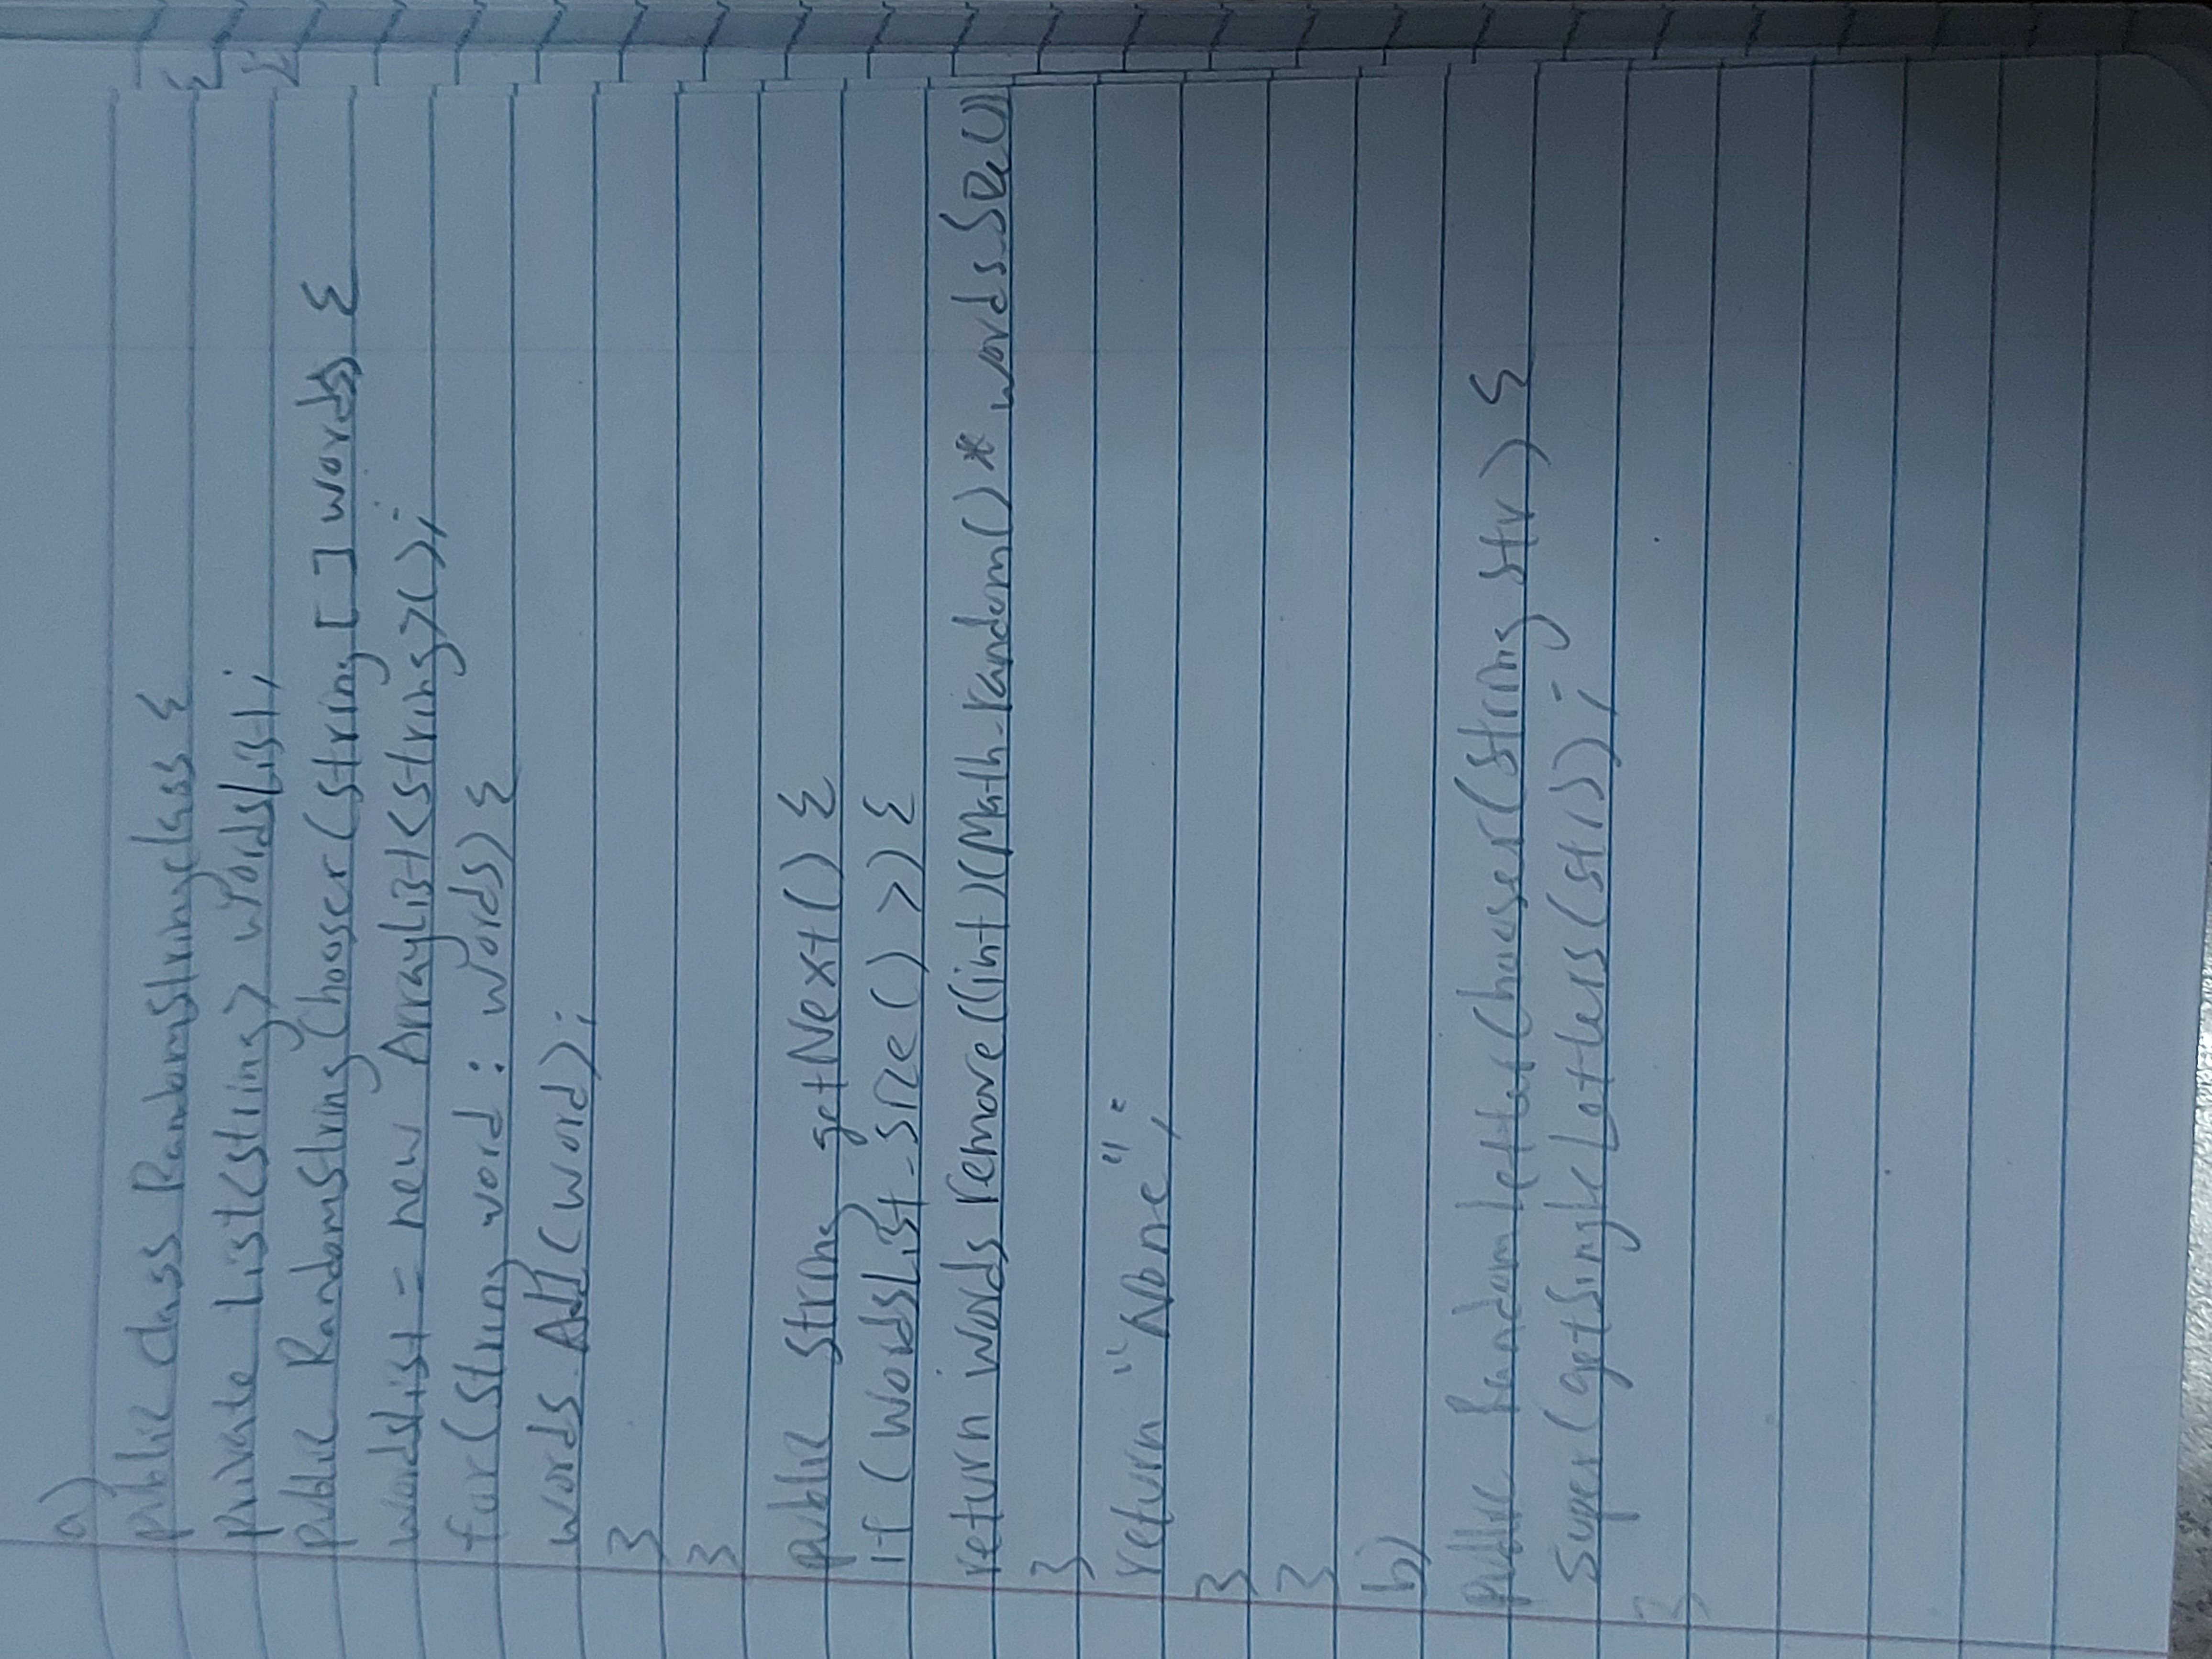 a)
public class RandomStringclass {
private List<string> wordslist;
public RandomString Chooser (string [ ] words) {
wordslist = new Arraylist<string>();
for (String word : words) {
words. Add (word);
}
}
public string getNext() {
if (wordsList.size () >) {
return words remove((int)(Math.random() * words.size()
}
return "None";
}
}
b)
public RandomletterChooser(String str) {
super(getSingleLetters(str));
}